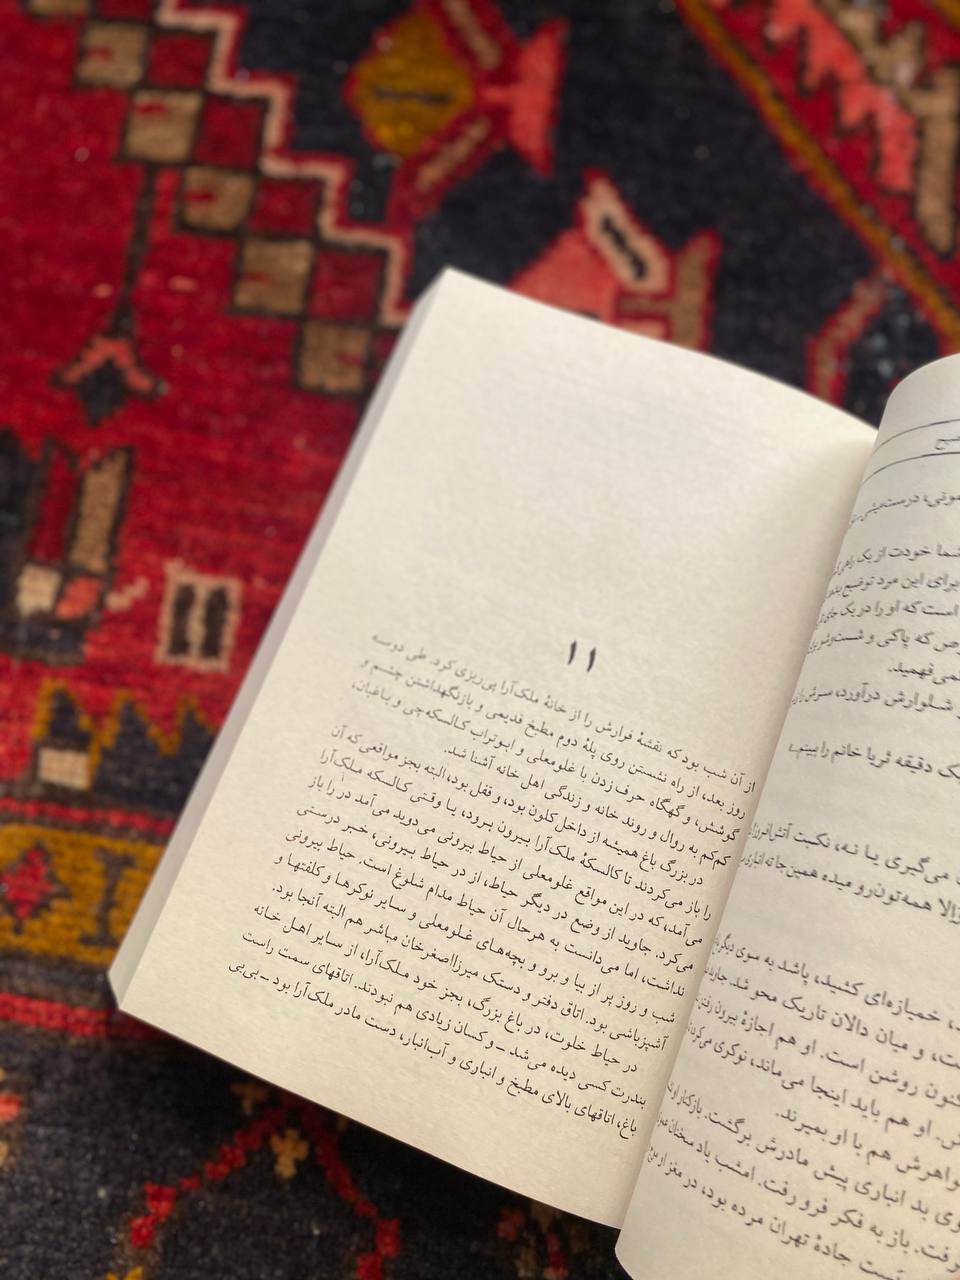 ضیح
شما خودت از یک
برای این مرد توضیح
است که او را در یک جای
که پاکی و
نمی‌فهمید.
شلوارش درآورد،
دقیقه ثریا خانم را ببینم؟
می‌گیری یا نه، نکبت
همه‌تون‌رو میده همین‌جا ته
خمیازه‌ای کشید، پاشد به سوی دیگر
و میان دالان تاریک محو شد.
کنون روشن است. او هم اجازهٔ بیرون
او هم باید اینجا می‌ماند، نوکری می‌کرد
خواهرش هم با او بمیرند.
بد انباری پیش مادرش برگشت.
رفت. باز به فکر فرو رفت. امشب یاد سخنان
جادهٔ تهران مرده بود، در مغز او
۱۱
از آن شب بود که نقشهٔ فرارش را از خانهٔ ملک‌آرا پی‌ریزی کرد. طی دوسه
روز بعد، از راه نشستن روی پلهٔ دوم مطبخ قدیمی و بازنگهداشتن چشم و
گوشش، و گهگاه حرف زدن با غلومعلی و ابوتراب کالسکه‌چی و باغبان،
کم‌کم به روال و روند خانه و زندگی اهل خانه آشنا شد.
در بزرگ باغ همیشه از داخل کلون بود، و قفل بود، البته بجز مواقعی که آن
را باز می‌کردند تا کالسکهٔ ملک‌آرا بیرون برود، یا وقتی کالسکه ملک‌آرا
می‌آمد، که در این مواقع غلومعلی از حیاط بیرونی می‌دوید می‌آمد در را باز
می‌کرد. جاوید از وضع در دیگر حیاط، از در حیاط بیرونی، خبر درستی
نداشت، اما می‌دانست به هرحال آن حیاط مدام شلوغ است. حیاط بیرونی
شب و روز پر از بیا و برو و بچه‌های غلومعلی و سایر نوکرها و کلفتها و
آشپزباشی بود. اتاق دفتر و دستک میرزااصغرخان مباشر هم البته آنجا بود.
در حیاط خلوت، در باغ بزرگ، بجز خود ملک‌آرا، از سایر اهل خانه
بندرت کسی دیده می‌شد ـ و کسان زیادی هم نبودند. اتاقهای سمت راست
باغ، اتاقهای بالای مطبخ و انباری و آب‌انبار، دست مادر ملک‌آرا بود ـ بی‌بی